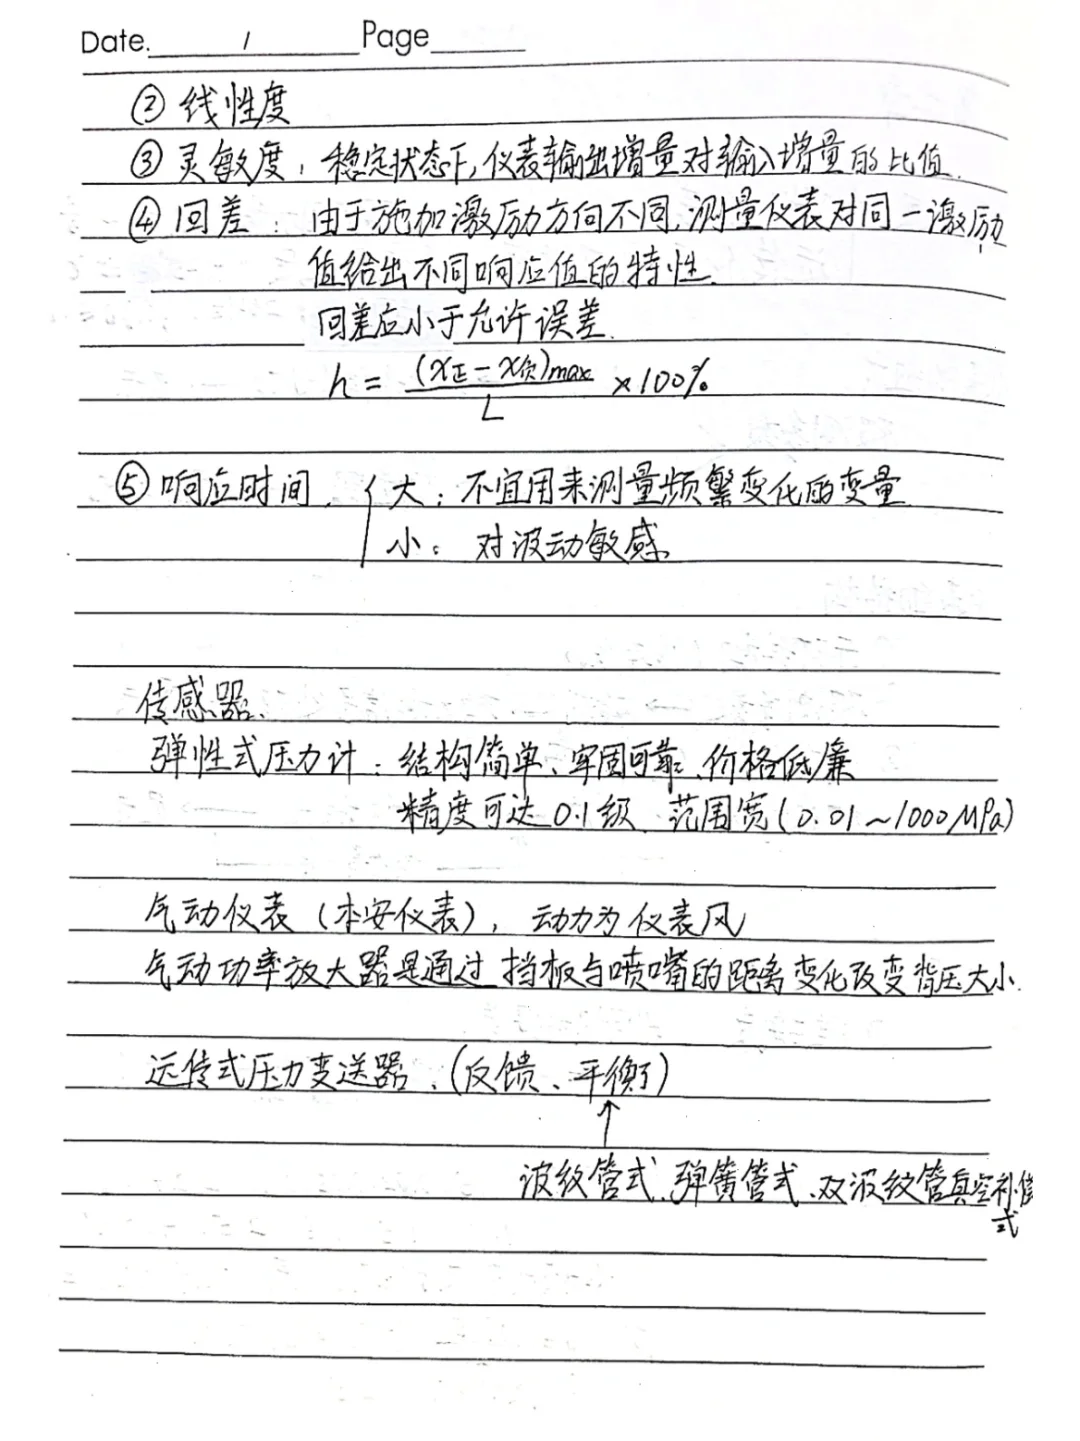 Date. / Page
② 线性度
③ 灵敏度：稳定状态下,仪表输出增量对输入增量的比值.
④ 回差：由于施加激励方向不同,测量仪表对同一激励
值给出不同响应值的特性.
回差应小于允许误差.
h = (x正 - x负)max / L × 100%
⑤ 响应时间. { 大：不宜用来测量频繁变化的变量
小：对波动敏感.
传感器.
弹性式压力计：结构简单、牢固可靠、价格低廉
精度可达 0.1级. 范围宽(0.01~1000MPa)
气动仪表(本安仪表)，动力为仪表风
气动功率放大器是通过挡板与喷嘴的距离变化改变背压大小.
远传式压力变送器、(反馈、平衡)
↑
波纹管式、弹簧管式、双波纹管真空补偿
式